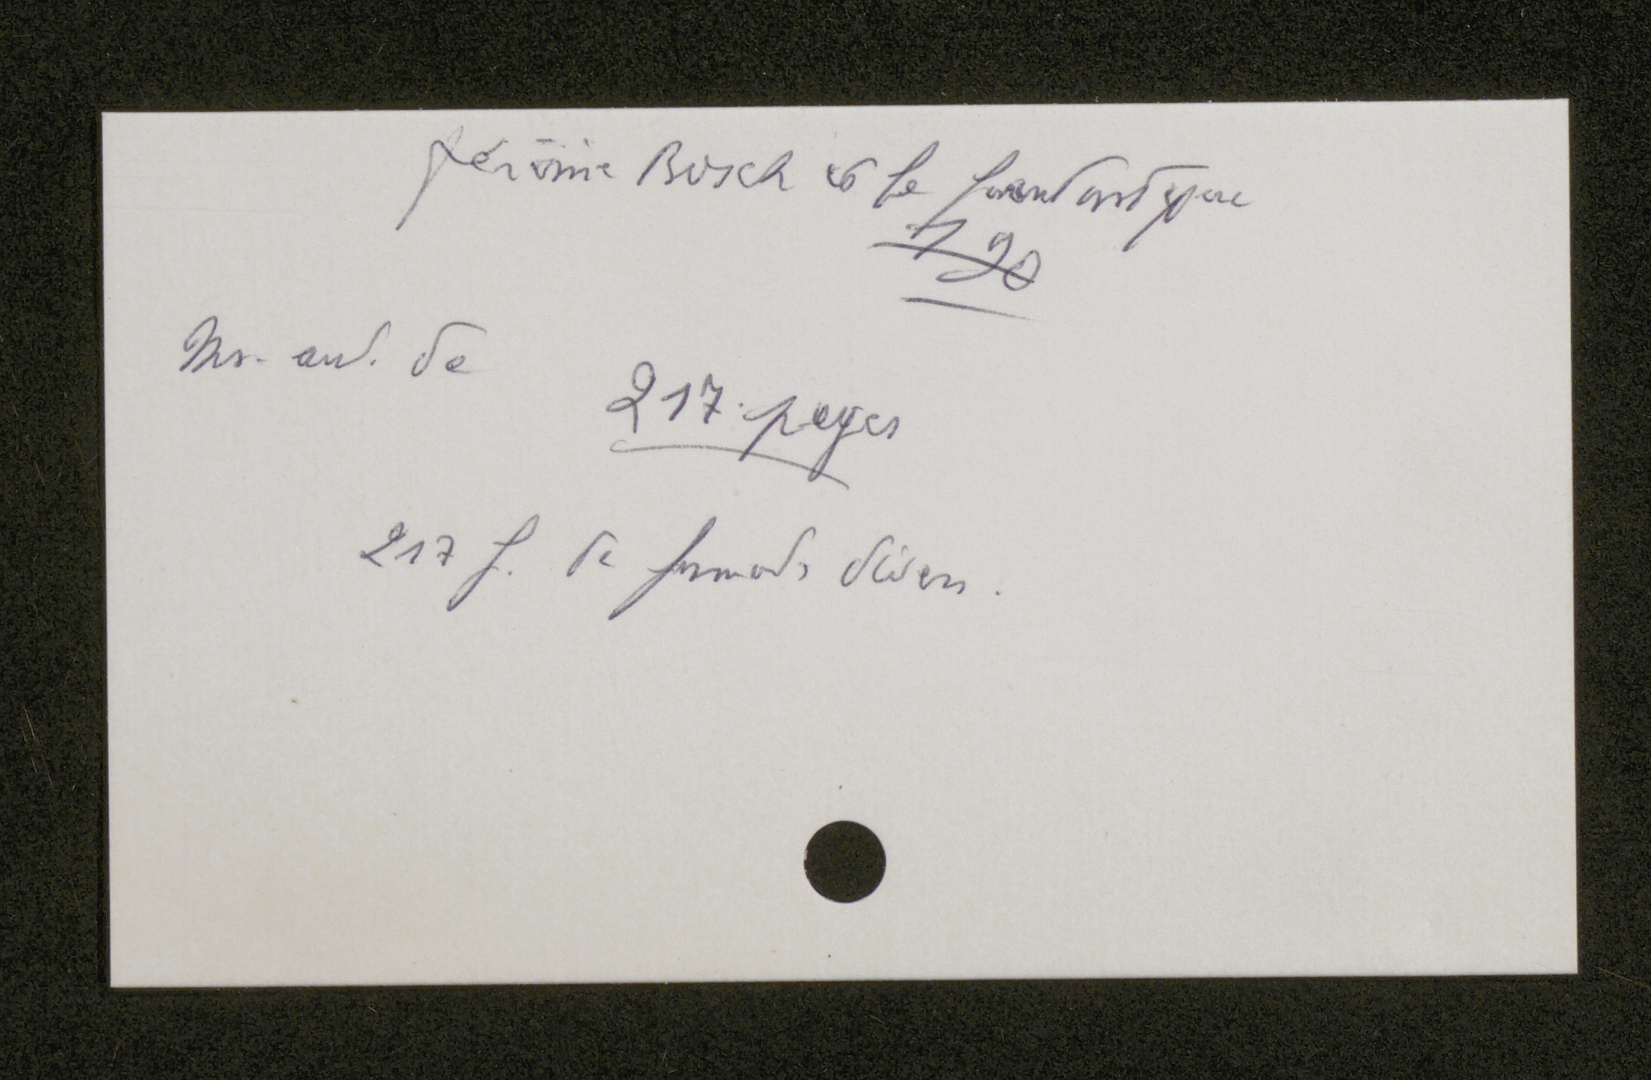 Jérôme Bosch et le fantastique
190
Ms. aut. de
217 pages
217 f. de formats divers.